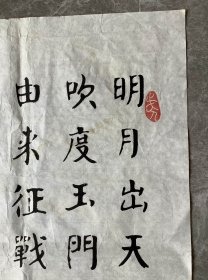 明月出天
吹度玉門
由来征戰